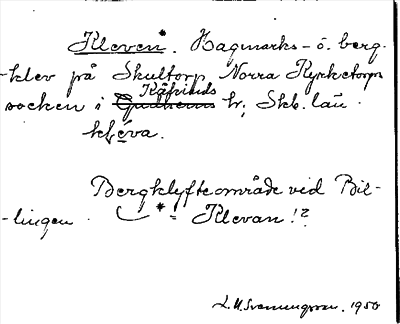 Kleven*. Hagmarks- o. berg-
-klev på Skultorp, Norra Kyrketorps
Kåkinds
socken i Gudhems hr, Skb. län.
kléva.
Bergklyfteområde ved Bil-
-lingen. * = Klevan!?
L.M. Svenungsson. 1950